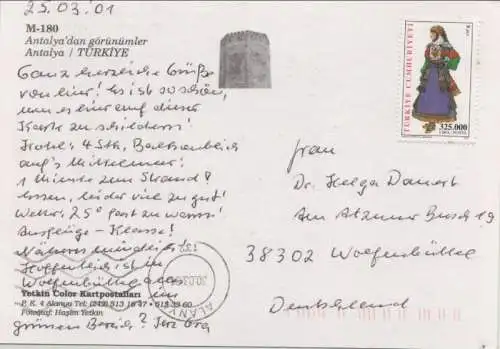 25.03.01
M-180
Antalya'dan görünümler
Antalya / TÜRKİYE
Ganz herzliche Grüße
von hier! Es ist so schön,
um es hier auf dieser
Karte zu schildern!
Hotel: 4 Stk, Balkonblick
auf's Mittelmeer!
1 Minute zum Strand!
Essen, leider viel zu gut!
Wetter: 25° fast zu warm!
Ausflüge - Klasse!
Näheres mündlich!
Hoffentlich ist in
Wolfenbüttel alles
im
grünen Bereich?
Yetkin Color Kartpostalları
P. K. 4 Alanya Tel: (242) 513 16 37 - 513 33 60
Fotoğraf: Haşim Yetkin
TÜRKİYE CUMHURİYETİ
325.000
ALANYA
Frau
Dr. Helga Danert
Am Atzumer Busch 19
38302 Wolfenbüttel
Deutschland